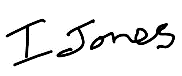 I Jones